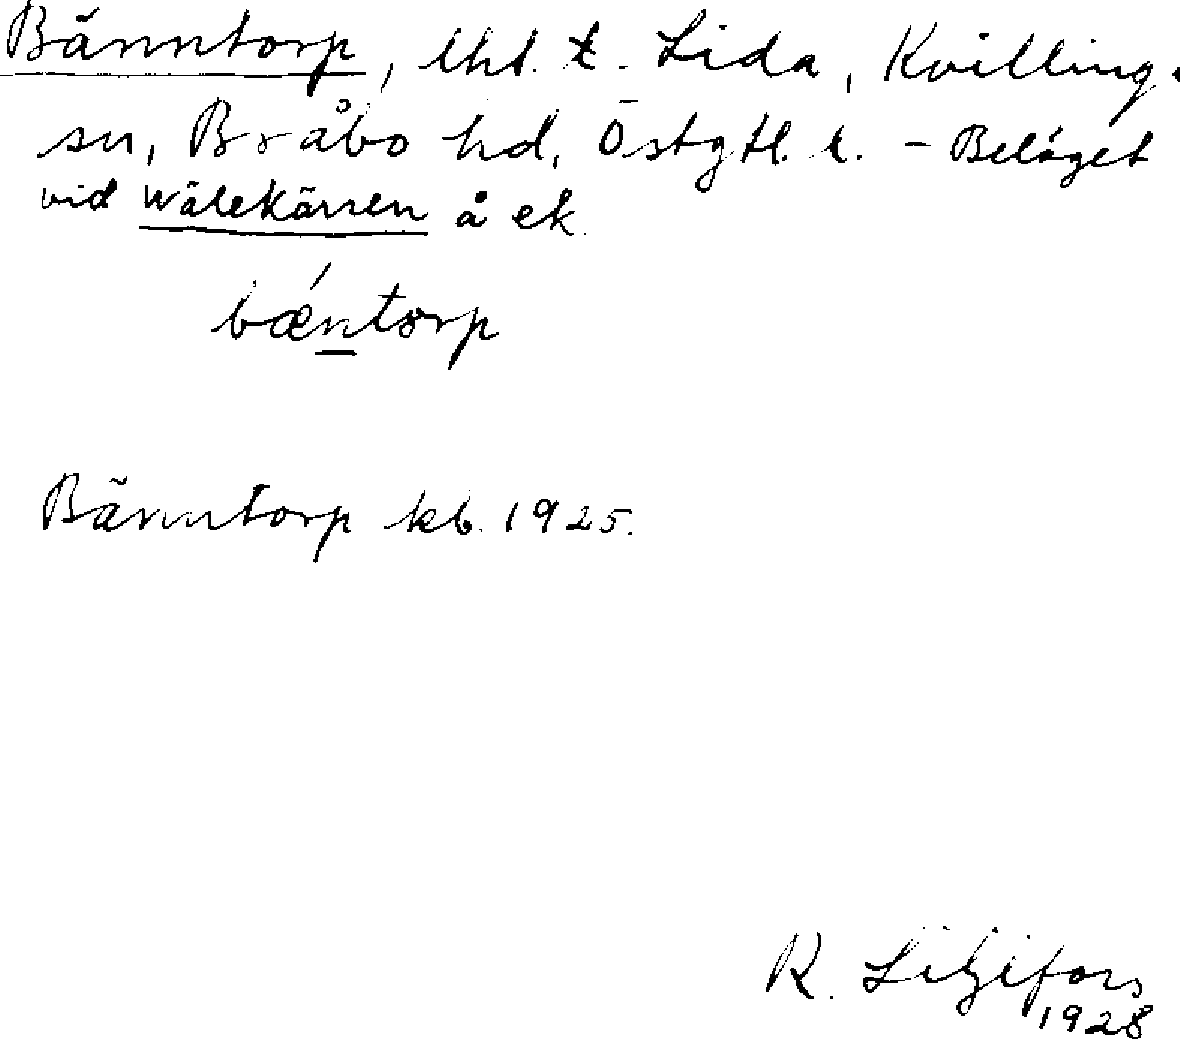 Bänntorp, lht. t. Lida, Kvillinge
sn, Bråbo hd, Östgtl. l. – Beläget
vid Wälekärren å ek.
bǽntorp
Bänntorp kb. 1925.
R. Liljefors
1928